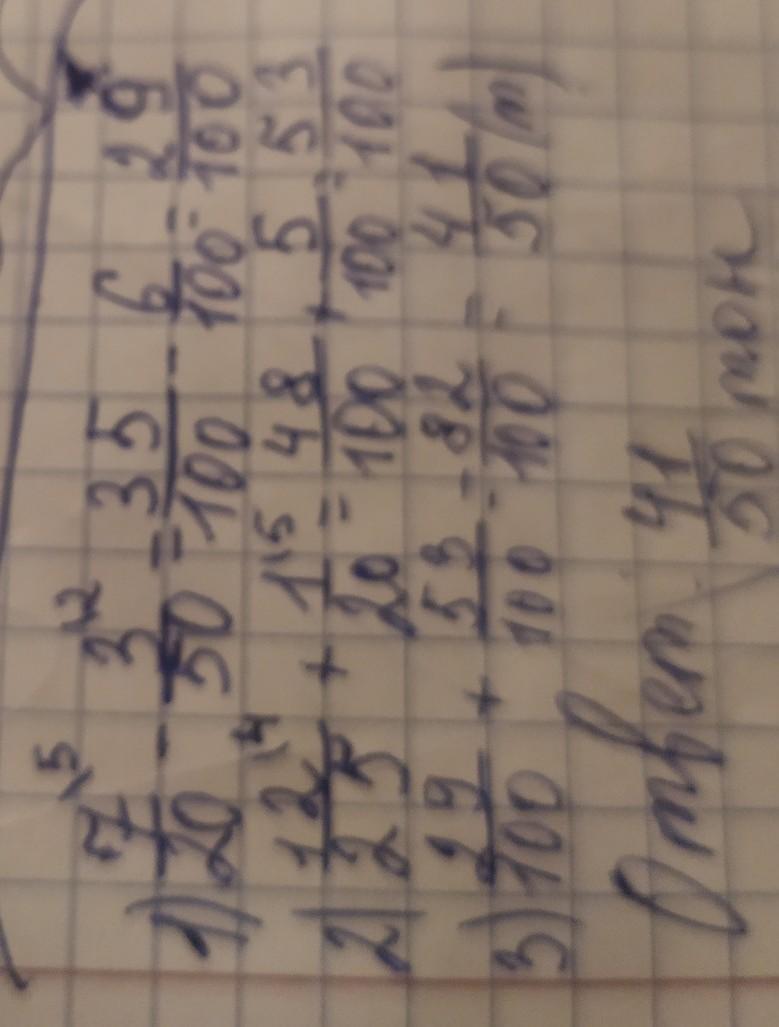 1) 7/20 \5 - 3/50 \2 = 35/100 - 6/100 = 29/100
2) 12/25 \4 + 1/20 \5 = 48/100 + 5/100 = 53/100
3) 29/100 + 53/100 = 82/100 = 41/50 (т)
Ответ. 41/50 тон